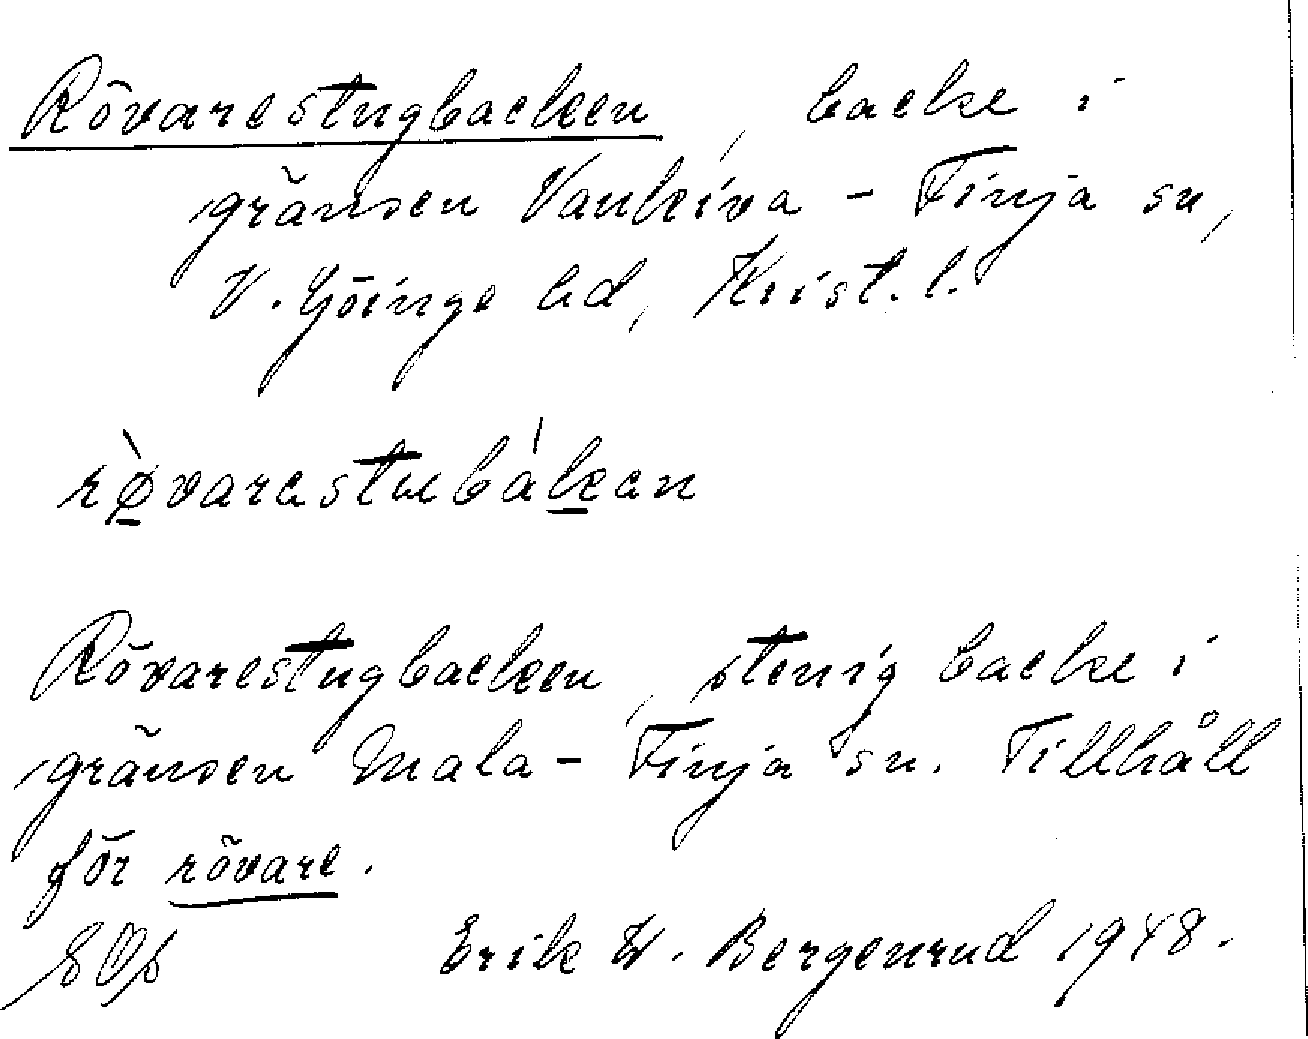 Rövarestugbacken, backe i
gränsen Vankiva - Finja sn,
V. Göinge hd, Krist. l.
rø̀varestubákan
Rövarestugbacken, stenig backe i
gränsen Mala - Finja sn. Tillhåll
för rövare.
Erik W. Bergenrud 1948.